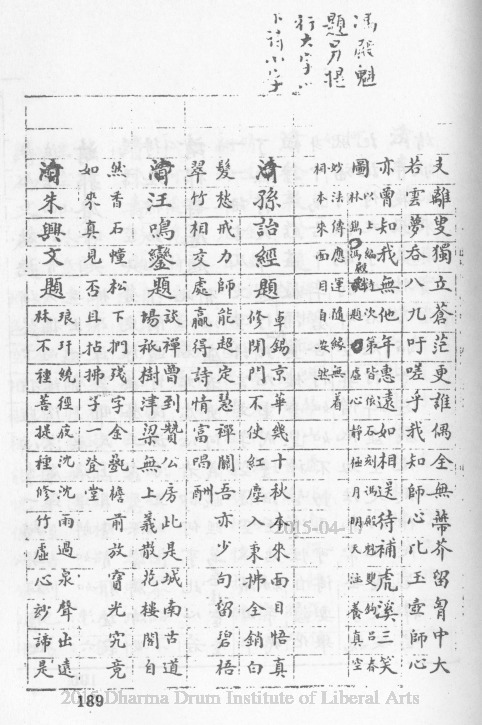 馮殿魁
題另提
行大字
下詩小字
支離叟獨立蒼茫更誰偶全無蔕芥留胷中大
若雲夢吞八九吁嗟乎我知師心比玉壺師心
亦曾知我無他年惠遠如相送待補虎溪三笑
圖以上編註次第皆依石刻馮殿魁雙鉤呂春
林 馮殿魁題 虛心靜極月明天溢養真空
妙法傳應運隨緣無着
相本來面目自安然
濟孫詒經題 卓錫京華幾十秋本來面目悟真
修閉門不使紅塵入東拂全銷白
髮愁戒力師能超定慧禪關吾亦少句留碧梧
翠竹相交處贏得詩情富唱酬
濟汪鳴鑾題 談禪曾到贊公房此是城南古道
場祇樹津梁無上義散花樓閣自
然香石幢松下捫殘字金甃檐前放寶光究竟
如來真見否且拈拂子一登堂
濟朱興文題 琅玕繞徑依沈沈雨過泉聲出遠
林不種菩提種修竹虛心妙諦是
189
2015-04-17
2015 Dharma Drum Institute of Liberal Arts